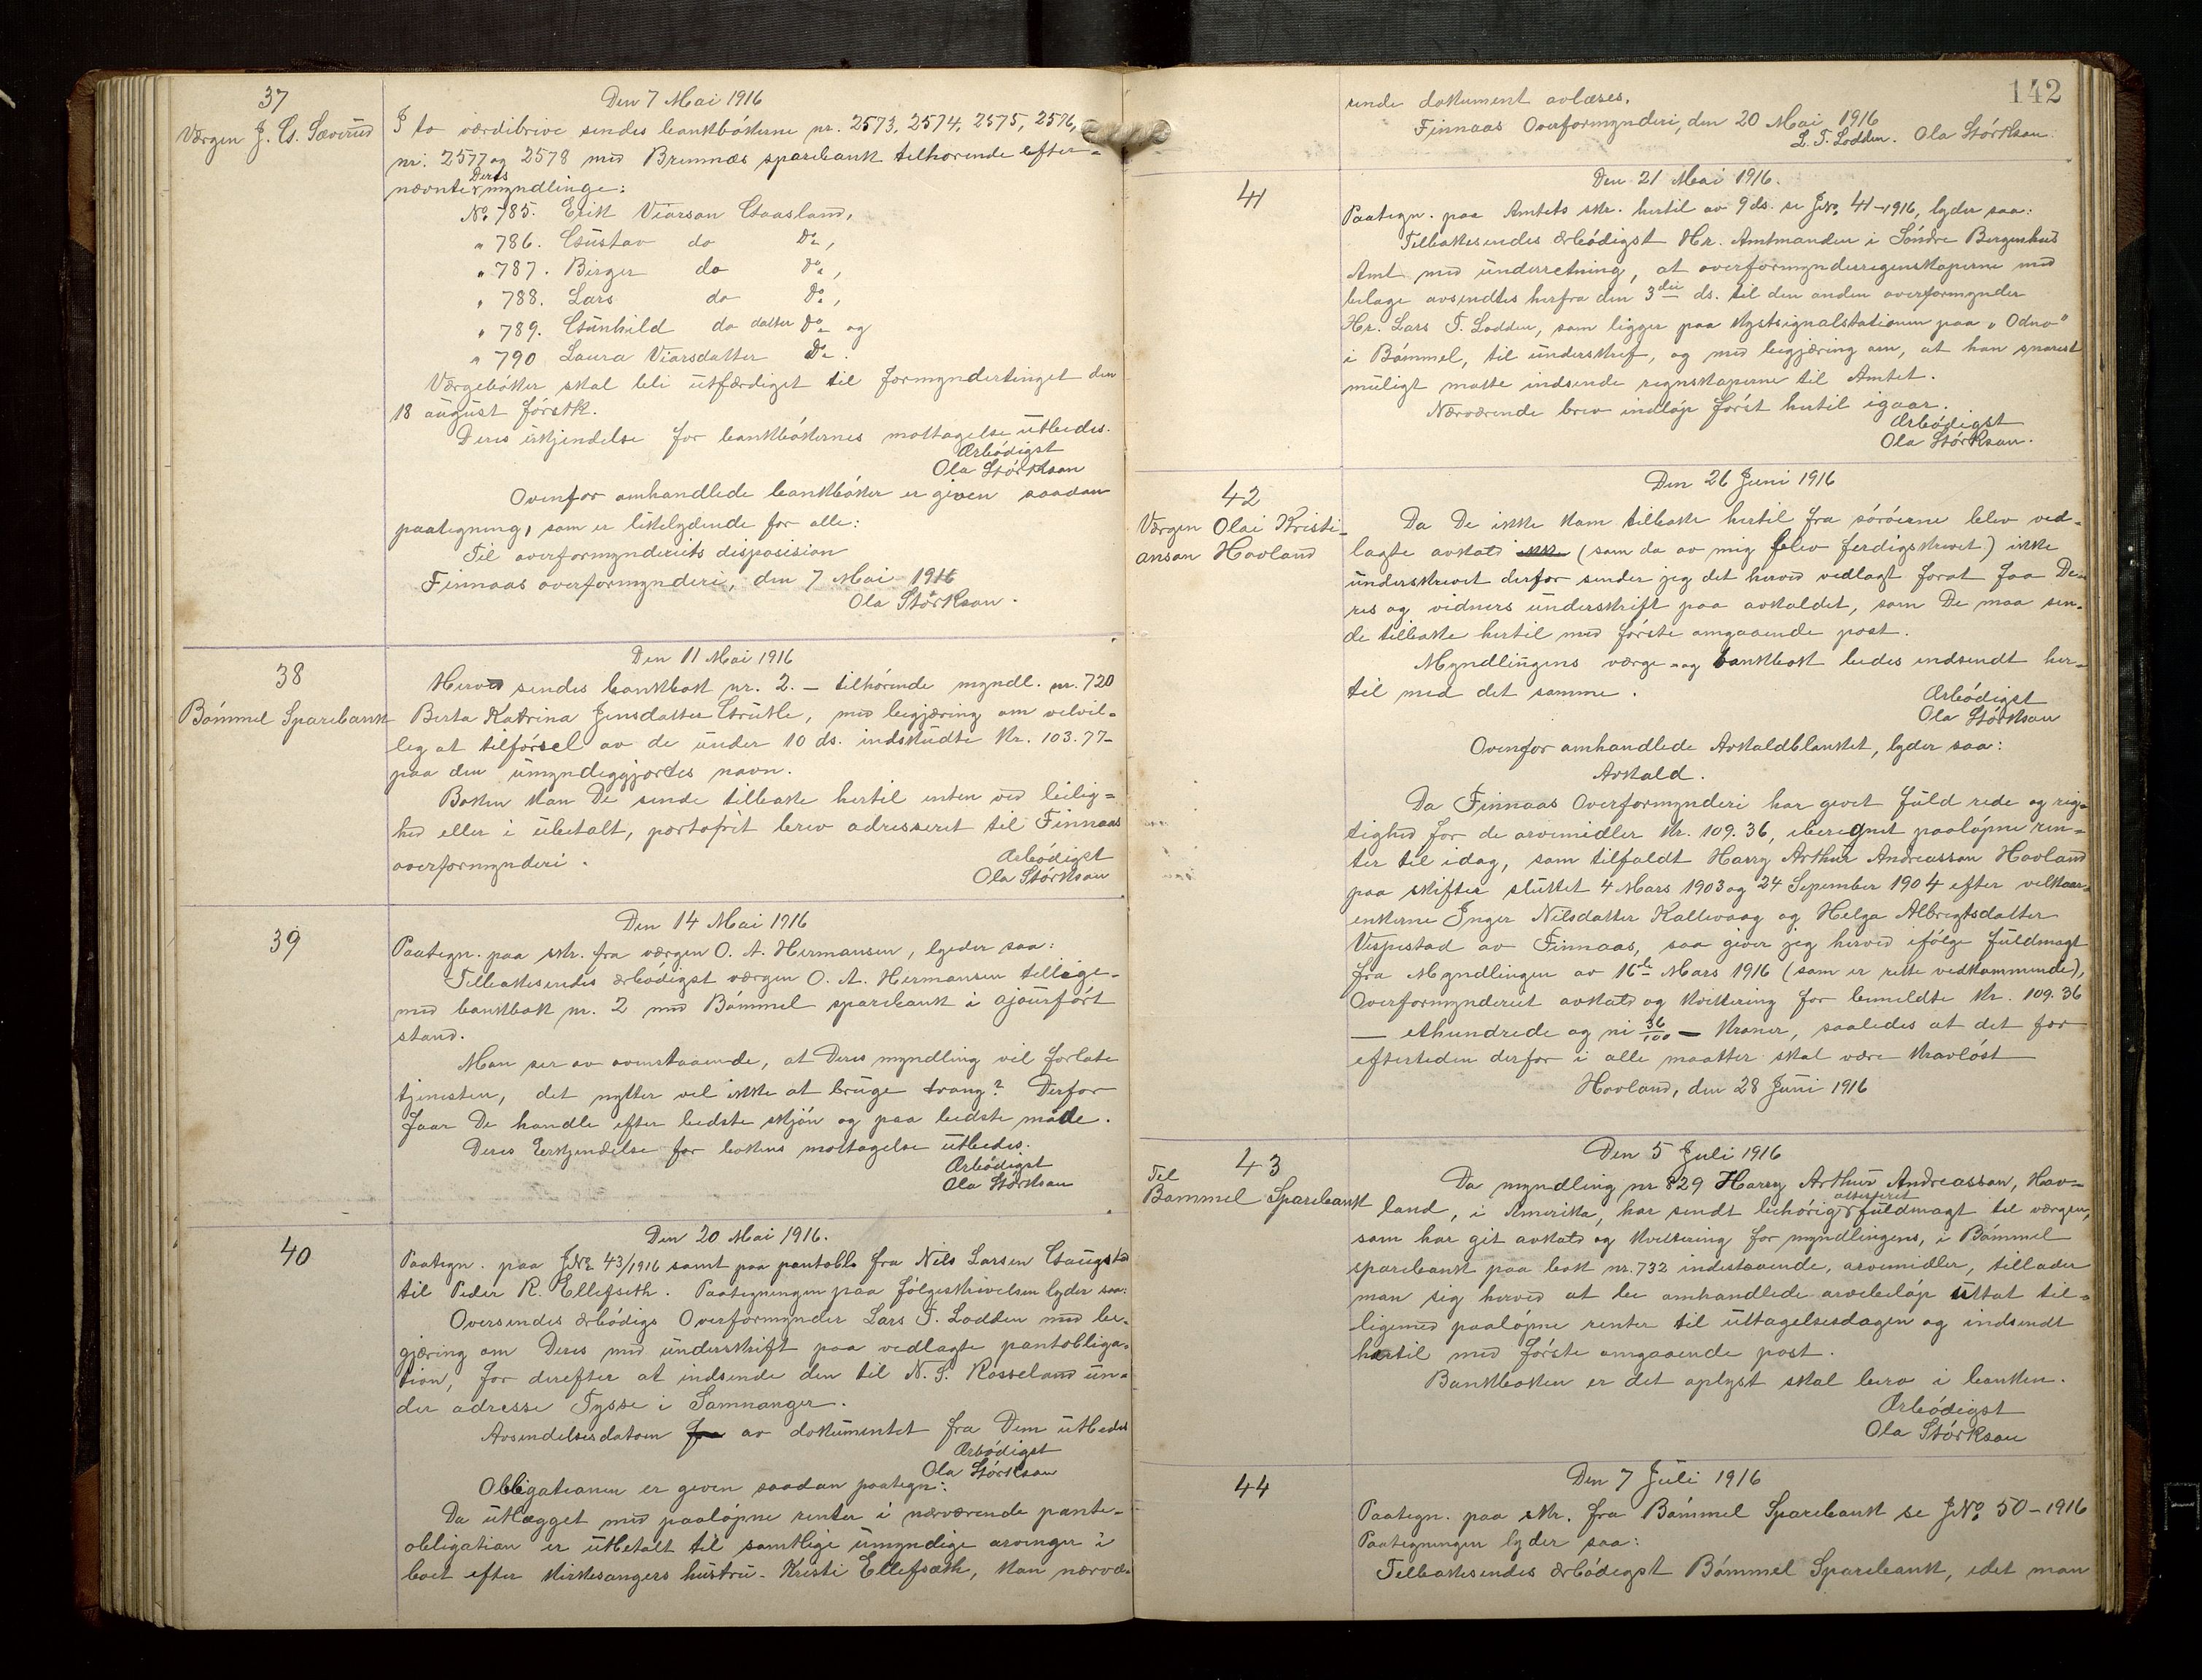 37
Værgen J. G. Sæverud
Den 7 Mai 1916
I to værdibrive sendes bankbökerne nr. 2573, 2574, 2575, 2576,
nr. 2577 og 2578 med Bremnæs sparebank tilhorende efter-
nævnte Deres myndlinge:
No 785. Erik Viarson Gaasland,
" 786. Gustav do Do,
" 787. Birger do Do,
" 788. Lars do Do,
" 789. Gunhild do datter Do og
" 790 Laura Viarsdatter Do.
Værgebøker skal bli utfærdiget til formyndertinget den
18 august förstk.
Deres erkjendelse for bankbökernes mottagelse utbedes.
Ærbödigst
Ola Störkson
Ovenfor omhandlede bankböker er given saadan
paategning, som er likelydende for alle:
Til overformynderiets disposision
Finnaas overformynderi, den 7 Mai 1916
Ola Störkson.
38
Bömmel Sparebank
Den 11 Mai 1916
Herved sendes bankbok nr. 2. – tilhörende myndl. nr. 720
Berta Katrina Jensdatter Grutle, med begjæring om velvil-
lig at tilförsel av de under 10 ds. indskudte Kr. 103.77–
paa den umyndiggjortes navn.
Boken kan De sende tilbake hertil enten ved leilig-
hed eller i ubetalt, portofrit brev adresseret til Finnaas
overformynderi.
Ærbödigst
Ola Störkson
39
Den 14 Mai 1916
Paategn. paa skr. fra værgen O. A. Hermansen, lyder saa:
Tilbakesendes ærbödigst værgen O. A. Hermansen tillige-
med bankbok nr. 2 med Bömmel sparebank i ajourfört
stand.
Man ser av ovenstaaende, at Deres myndling vil forlate
tjenesten, det nytter vel ikke at bruge tvang? Derfor
faar De handle efter bedste skjön og paa bedste måde.
Deres Erkjendelse for bokens mottagelse utbedes.
Ærbödigst
Ola Störkson
40
Den 20 Mai 1916.
Paategn. paa JNo 43/1916 samt paa pantobl. fra Nils Larsen Gaugstd
til Peder R. Ellefseth. Paategningen paa fölgeskrivelsen lyder saa:
Oversendes ærbödigs Overformynder Lars T. Lodden med be-
gjæring om Deres med underskrift paa vedlagte pantobliga-
tion, for derefter at indsende den til N. S. Rosseland un-
der adresse Tysse i Samnanger.
Avsendelsesdatoen fra av dokumentet fra Dem utbedes
Ærbödigst
Ola Störkson
Obligationen er given saadan paategn:
Da utlægget med paalöpne renter i nærværende pante-
obligation er utbetalt til samtlige umyndige arvinger i
boet efter kirkesangers hustru. Kristi Ellefsæth, kan nærvæ-
142
rende dokument avlæses.
Finnaas Overformynderi, den 20 Mai 1916
L. T. Lodden. Ola Störkson.
41
Den 21 Mai 1916.
Paategn. paa Amtets skr. hertil av 9 ds. se JNo. 41–1916, lyder saa:
Tilbakesendes ærbödigst Hr. Amtmanden i Söndre Bergenhus
Amt med underretning, at overformynderregnskaperne med
bilage avsendtes herfra den 3die ds. til den anden overformynder
Hr. Lars T. Lodden, som ligger paa kystsignalstationen paa "Odno"
i Bömmel, til underskrif, og med begjæring om, at han snarest
muligt maatte indsende regnskaperne til Amtet.
Nærværende brev indlöp först hertil igaar.
Ærbödigst
Ola Störkson.
42
Værgen Olai Kristi-
anson Hovland
Den 26 Juni 1916
Da De ikke kom tilbake hertil fra söröerne blev ved-
lagte avkald ikke (som da av mig blev ferdigskrevet) ikke
underskrevet derfor sender jeg det herved vedlagt forat faa De-
res og vidners underskrift paa avkaldet, som De maa sen-
de tilbake hertil med förste omgaaende post.
Myndlingens værge- og bankbok bedes indsendt her-
til med det samme.
Ærbödigst
Ola Störkson
Ovenfor omhandlede Avkaldblanket, lyder saa:
Avkald.
Da Finnaas Overformynderi har givet fuld rede og rig-
tighed for de arvemidler Kr. 109.36, iberegnet paalöpne ren-
ter til idag, som tilfaldt Harry Arthur Andreasson Hovland
paa skifter sluttet 4 Mars 1903 og 24 Sepember 1904 efter velkaar-
enkerne Inger Nilsdatter Kallevaag og Helga Albregtsdatter
Vespestad av Finnaas, saa giver jeg herved ifölge fuldmagt
fra Myndlingen av 16de Mars 1916 (som er rette vedkommende),
Overformynderiet avkald og kvittering for bemeldte Kr. 109.36
— ethundrede og ni 36/100 — Kroner, saaledes at det for
eftertiden derfor i alle maatter skal være kravlöst
Hovland, den 28 Juni 1916
43
Til
Bømmel Sparebank
Den 5 Juli 1916
Da myndling nr 829 Harry Arthur Andreasson, Hov-
land, i Amerika, har sendt behörig attesteret fuldmagt til værgen,
som har git avkald og kvittering for myndlingens, i Bömmel
sparebank paa bok nr. 732 indestaaende, arvemidler, tillader
man sig herved at be omhandlede arvebelöp uttat til-
ligemed paalöpne renter til uttagelsesdagen og indsendt
hertil med förste omgaaende post.
Bankboken er det oplyst skal bero i banken.
Ærbödigst
Ola Störkson
44
Den 7 Juli 1916
Paategn. paa skr. fra Bömmel Sparebank se JNo. 50–1916
Paategningen lyder saa:
Tilbakesendes ærbödigst Bömmel Sparebank, idet man